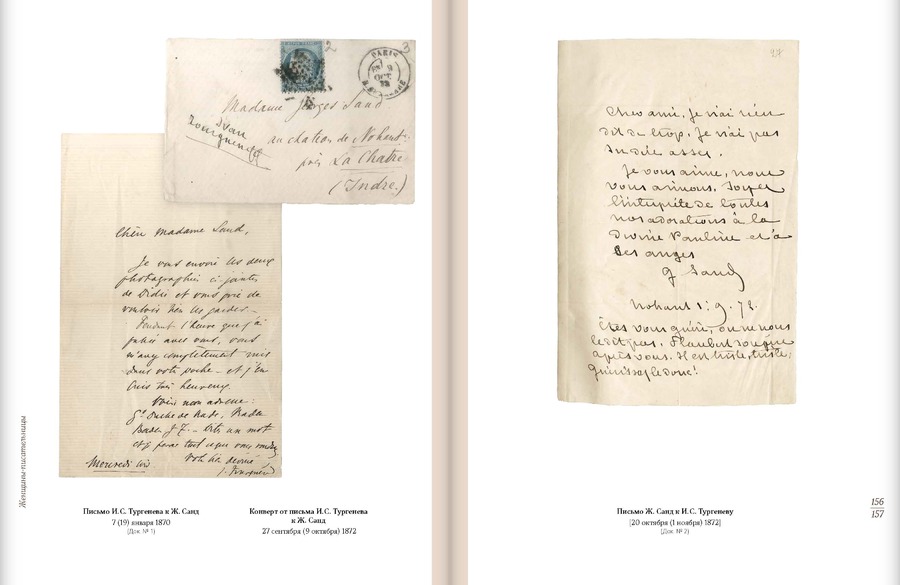 2
3
PARIS
9
OCT
72
Madame Georges Sand
au château de Nohant
près La Châtre
(Indre.)
Ivan
Tourguéneff
Chère Madame Sand,
Je vous envoie les deux
photographies ci-jointes
de Didie et vous prie de
vouloir bien les garder.
Pendant l'heure que j'ai
passée avec vous, vous
m'avez complètement mis
dans votre poche – et j'en
suis très heureux.
Voici mon adresse:
Bade
Baden – un mot
et je ferai tout ce que vous
Votre bien dévoué
Mercredi
J. Tourguéneff
Женщины-писательницы
Письмо И.С. Тургенева к Ж. Санд
7 (19) января 1870
(Док. № 1)
Конверт от письма И.С. Тургенева
к Ж. Санд
27 сентября (9 октября) 1872
27
Cher ami, je n'ai rien
dit de trop. Je n'ai pas
assez.
Je vous aime, nous
vous aimons. Soyez
l'interprète de toutes
nos adorations à la
Divine Pauline et à
ses anges
G Sand
Nohant 1: 9. 72.
Êtes vous guéri, on ne nous
le dit pas. Flaubert soupire
après vous. Il est triste, triste;
guérissez le donc!
Письмо Ж. Санд к И.С. Тургеневу
[20 октября (1 ноября) 1872]
(Док. № 2)
156
157